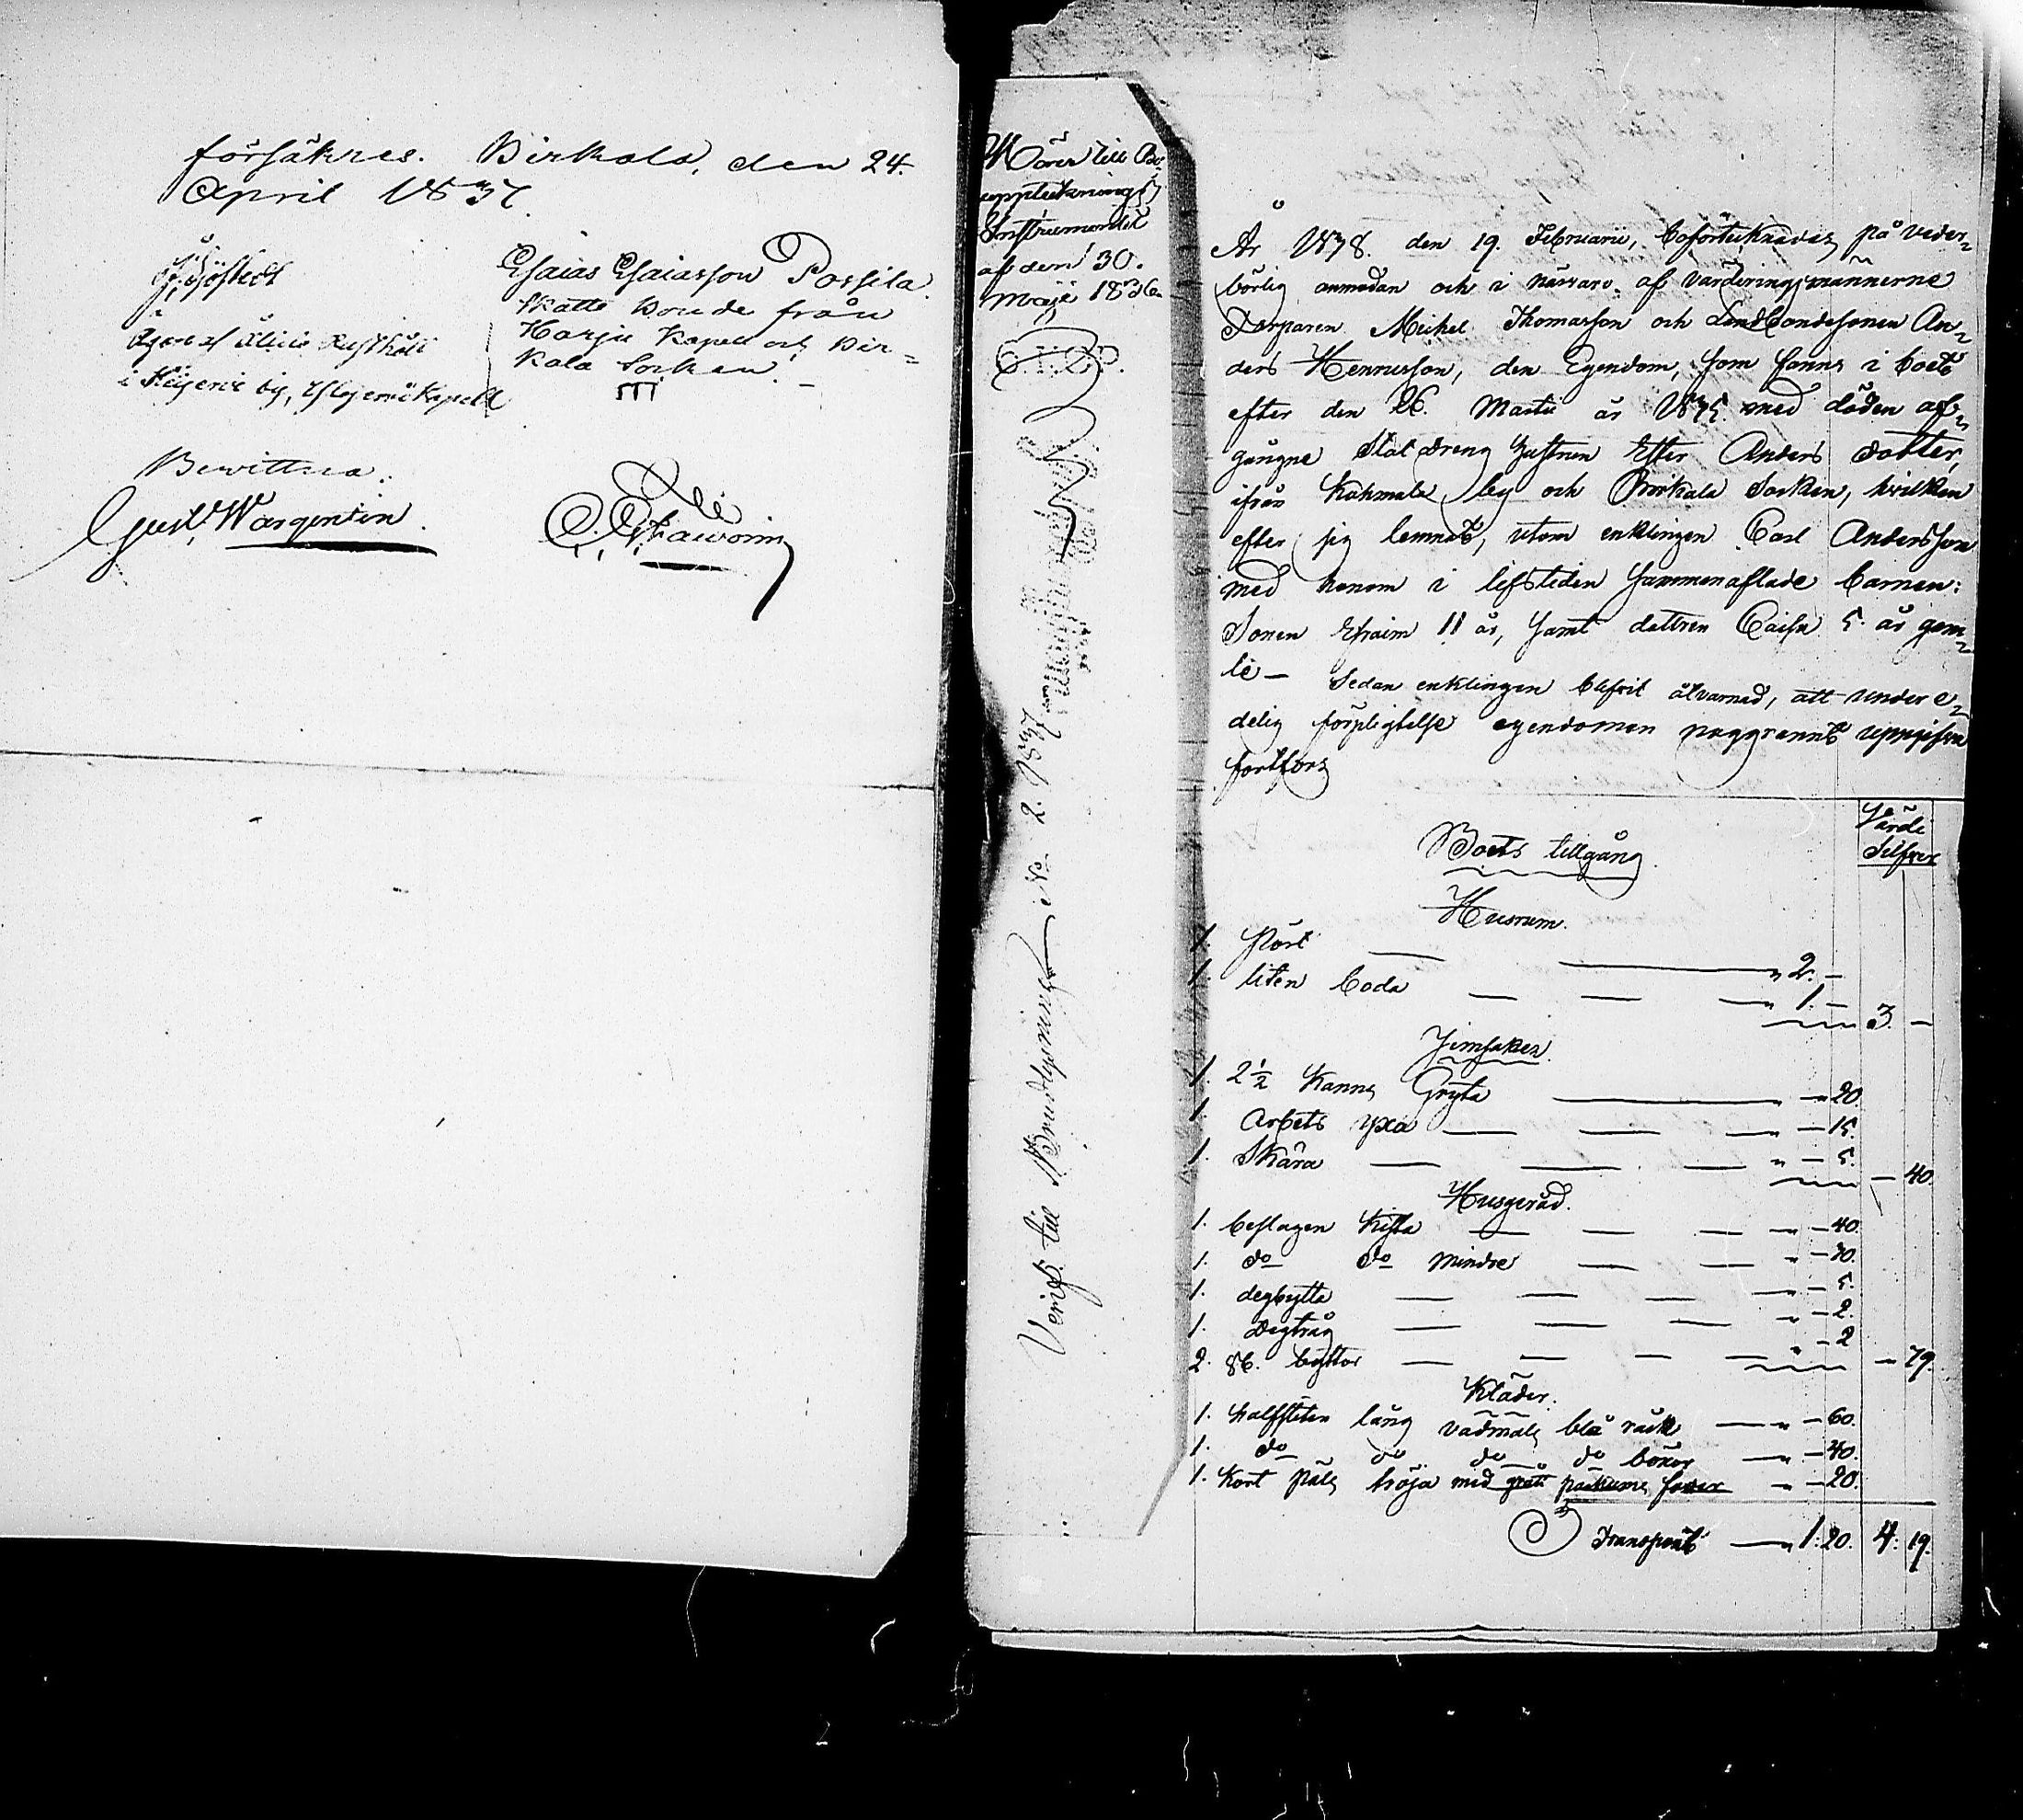 försäkres. Birkala, den 24.
April 1837.
Sjöstedt
Esaias Esaiasson Possila
Skatte Bonde från
Harju Kapell och Bir=
kala Socken.
Bewittna:
Gust. Wargentin.
Hörer till Bo
uppteknings
Instrumentet
af den 30.
Maji 1836.
Verif. till Brudlysningen No 2. 1837
År 1838. den 19. Februarii, boförtecknades på veder-
börlig anmodan och i närvaro af värderingsmännerne
Torparen Michel Thomasson och Landbondesonen An-
ders Henricsson, den Egendom, som fanns i boet
efter den 26. Martii år 1835 med döden af-
gångne Statdreng hustrun Ester Anders dotter,
ifrån Kahmala by och Birkala Socken, hvilken
efter sig lemnat, utom enklingen Carl Andersson
med honom i lifstiden sammanaflade barnen:
Sonen Efraim 11 år, samt dottren Caisa 5. år gam-
le — Sedan enklingen blifvit åtvarnad, att under e-
delig förpligtelse egendomen noggrannt uppgifva
fortfors
Värde
Silfver
Boets tillgång.
Husrum.
1. Pört — — " 2. —
1. liten boda — — — " 1. —
3. —
Jernsaker
1. 2½ Kanns Gryta — " — 20.
1. Arbets yxa — — — " — 15.
1. Skära — — — " — 5.
— 40.
Husgeråd.
1. beslagen Kista — — — " — 40.
1. do do mindre — — " — 30.
1. degbytta — — — — " — 5.
1. Degtråg — — — — " — 2.
2. st. byttor — — — — " — 2
— 79.
Kläder.
1. halfsliten lång vadmals blå råck — " — 60.
1. do do do do böxor — " — 40.
1. Kort päls tröja med foder " — 20.
Transport — " 1. 20. 4. 19.